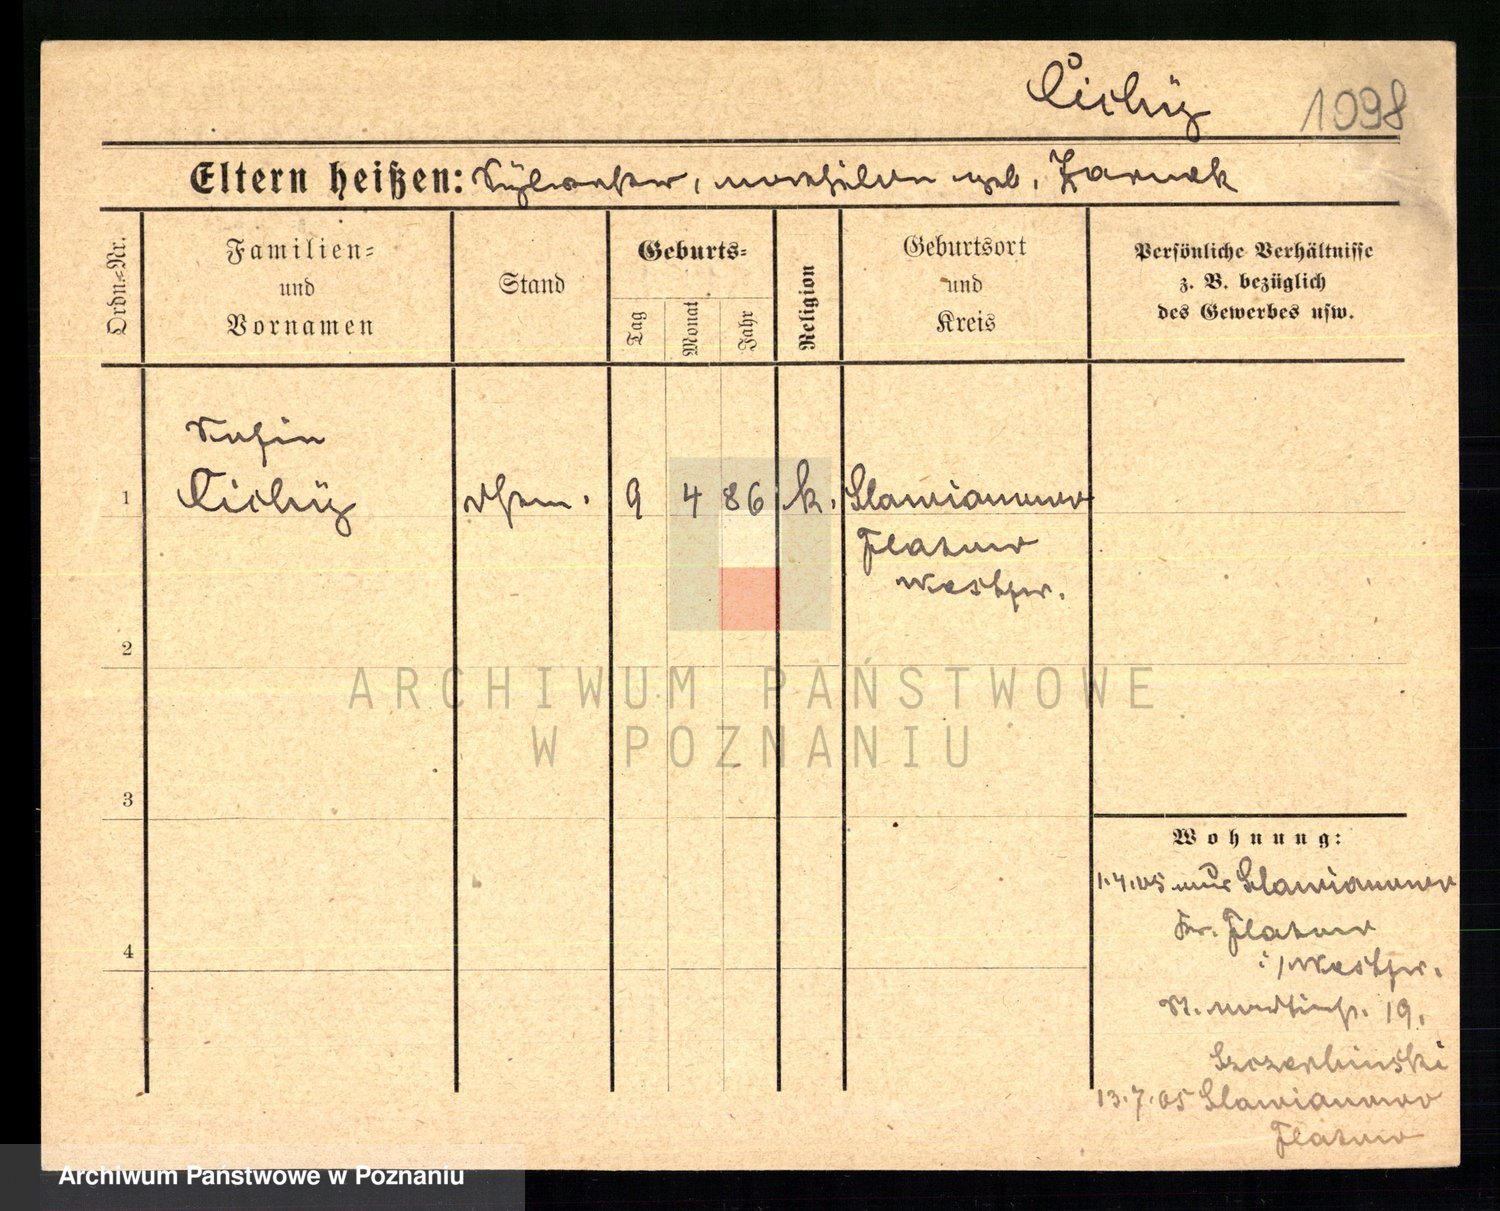 Cichÿ 1098
Eltern heißen: Sÿlvester, Mathilde geb. Zarnek
Ordn.-Nr.
Familien-
und
Vornamen
Stand
Geburts-
Tag
Monat
Jahr
Religion
Geburtsort
und
Kreis
Persönliche Verhältnisse
z. B. bezüglich
des Gewerbes usw.
1
Cichÿ
9 4 86 k. Slawianowo
Flatow
Westpr.
2
3
4
Wohnung:
1.4.05 aus Slawianowo
Kr. Flatow
i/Westpr.
St. Martinstr. 19.
Szczerbinski
13.7.05 Slawianowo
Flatow
ARCHIWUM PAŃSTWOWE
W POZNANIU
Archiwum Państwowe w Poznaniu